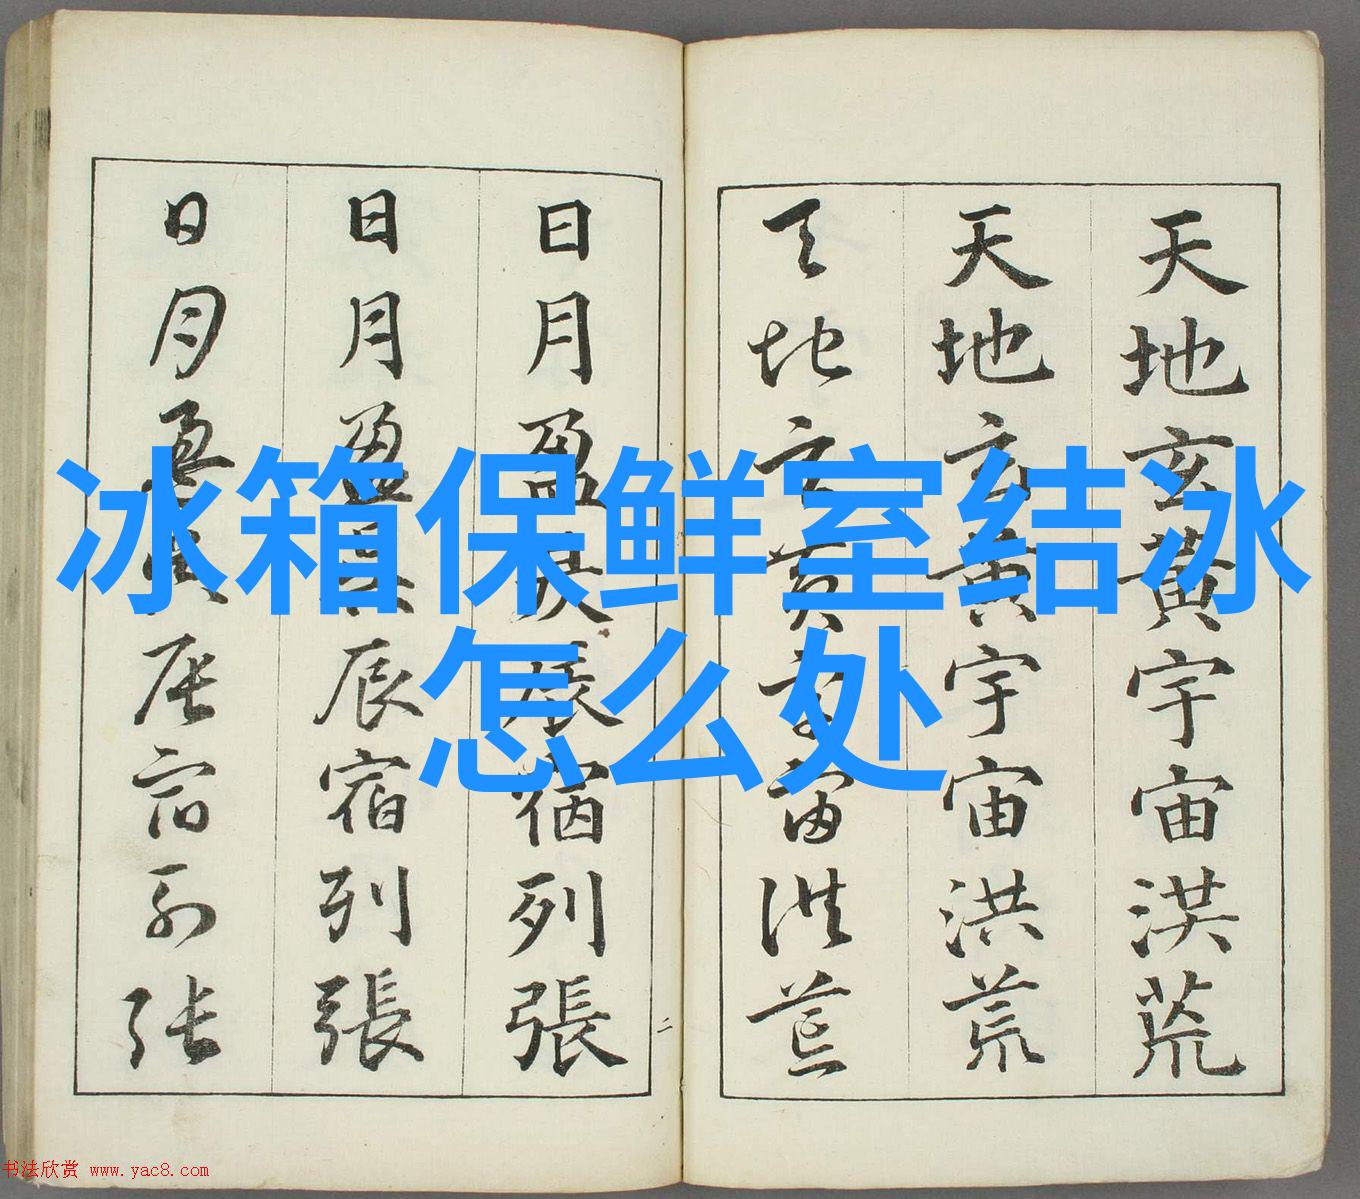 冰箱保鲜室结冰
怎么处
天地玄黄宇宙洪荒
天地玄黄宇宙洪荒
天地玄黄宇宙洪荒
日月盈昃辰宿列張
日月盈昃辰宿列張
日月盈昃辰宿列张
二
书法欣赏 www.yac8.com